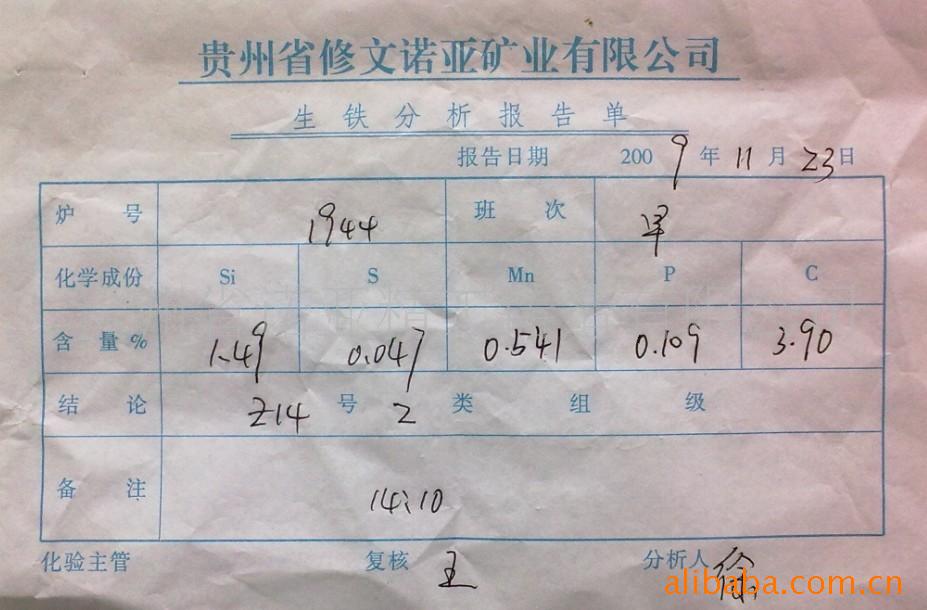 贵州省修文诺亚矿业有限公司
生铁分析报告单
报告日期 2009年11月23日
炉号 1944 班次 早
化学成份 Si S Mn P C
含量% 1.49 0.047 0.541 0.109 3.90
结论 Z14 号 2 类 组 级
备注 14:10
化验主管 复核 王 分析人 徐
alibaba.com.cn